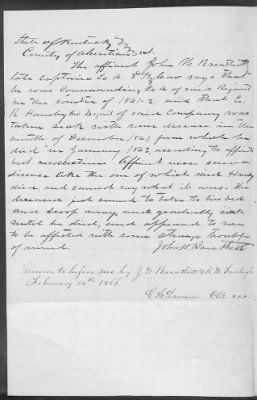 State of Kentucky
County of Christian
The affiant John W. Breathitt
late Captain Co A 3d Ky Cav says that
he was Commanding Co A of said Regiment
in the winter of 1861-2, and that E.
H. Hamby late Sergent of said Company was
taken sick with some disease in the
month of December 1861 from which he
died in January 1862, according to affiants
best recollection. Affiant never saw a
disease like the one of which said Hamby
died and cannot say what it was. The
deceased just seemed to take to his bed
and droop away, and gradually sink
until he died, and appeared to
be affected with some strange trouble
of mind. John W. Breathitt
Sworn to before me by J W Breathitt
February 14th 1866
Clk